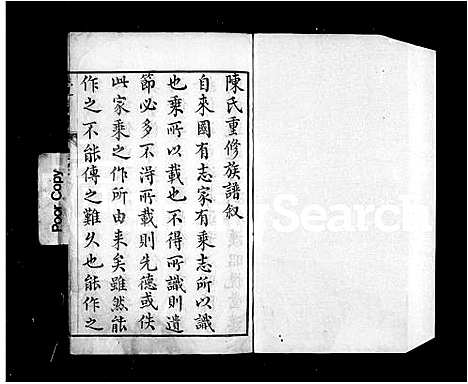 陳氏重修族譜叙
自來國有志家有乘志所以識
也乘所以載也不得所識則遺
節必多不淂所載則先德或佚
此家乘之作所由来矣雖然能
作之不能傳之難久也能作之
Poor Copy
Search